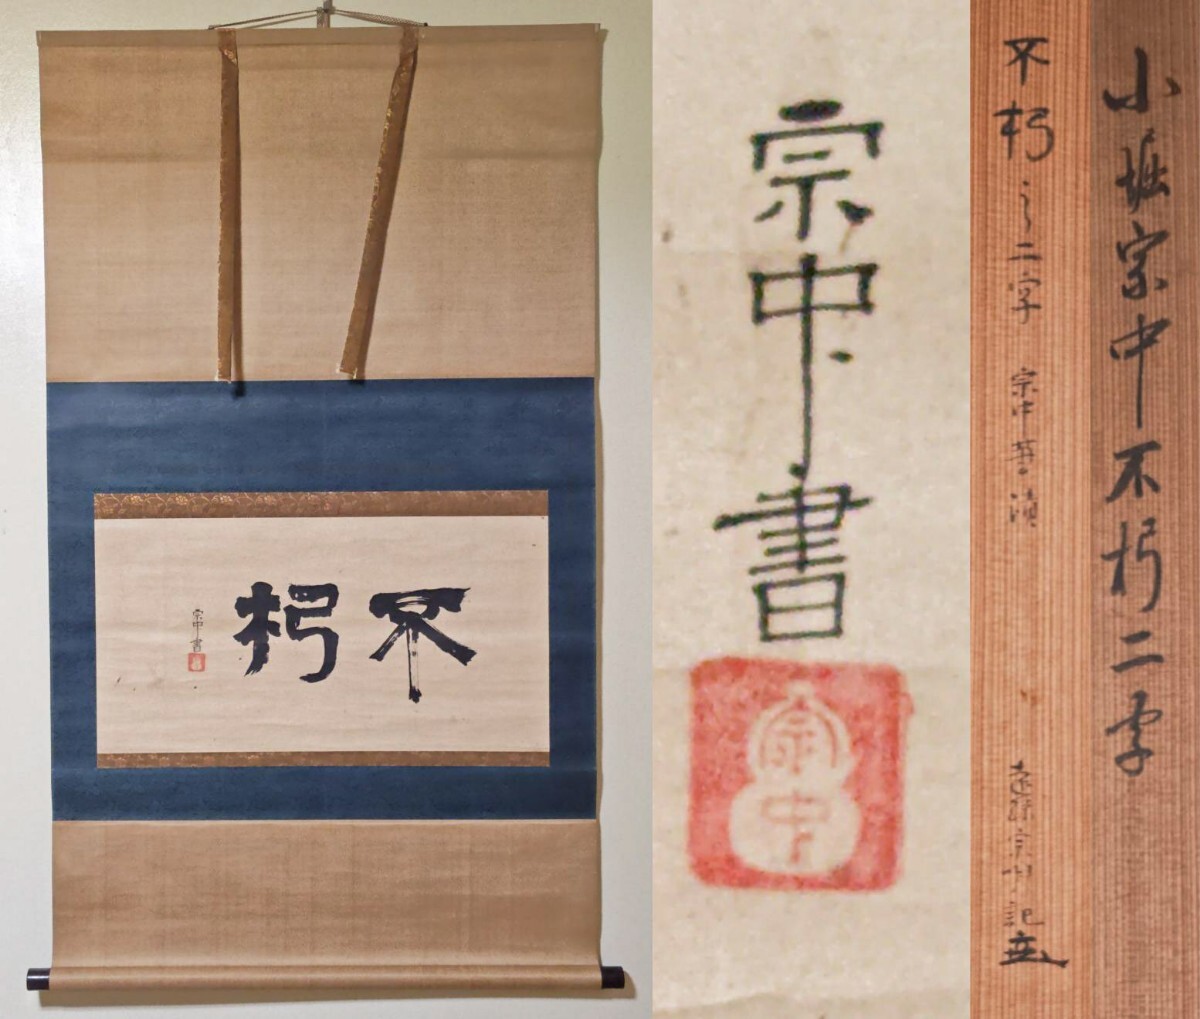 不朽
宗中書
宗中書
宗中
小堀宗中不朽二字
不朽之二字 宗中筆痕
遠孫宗明記